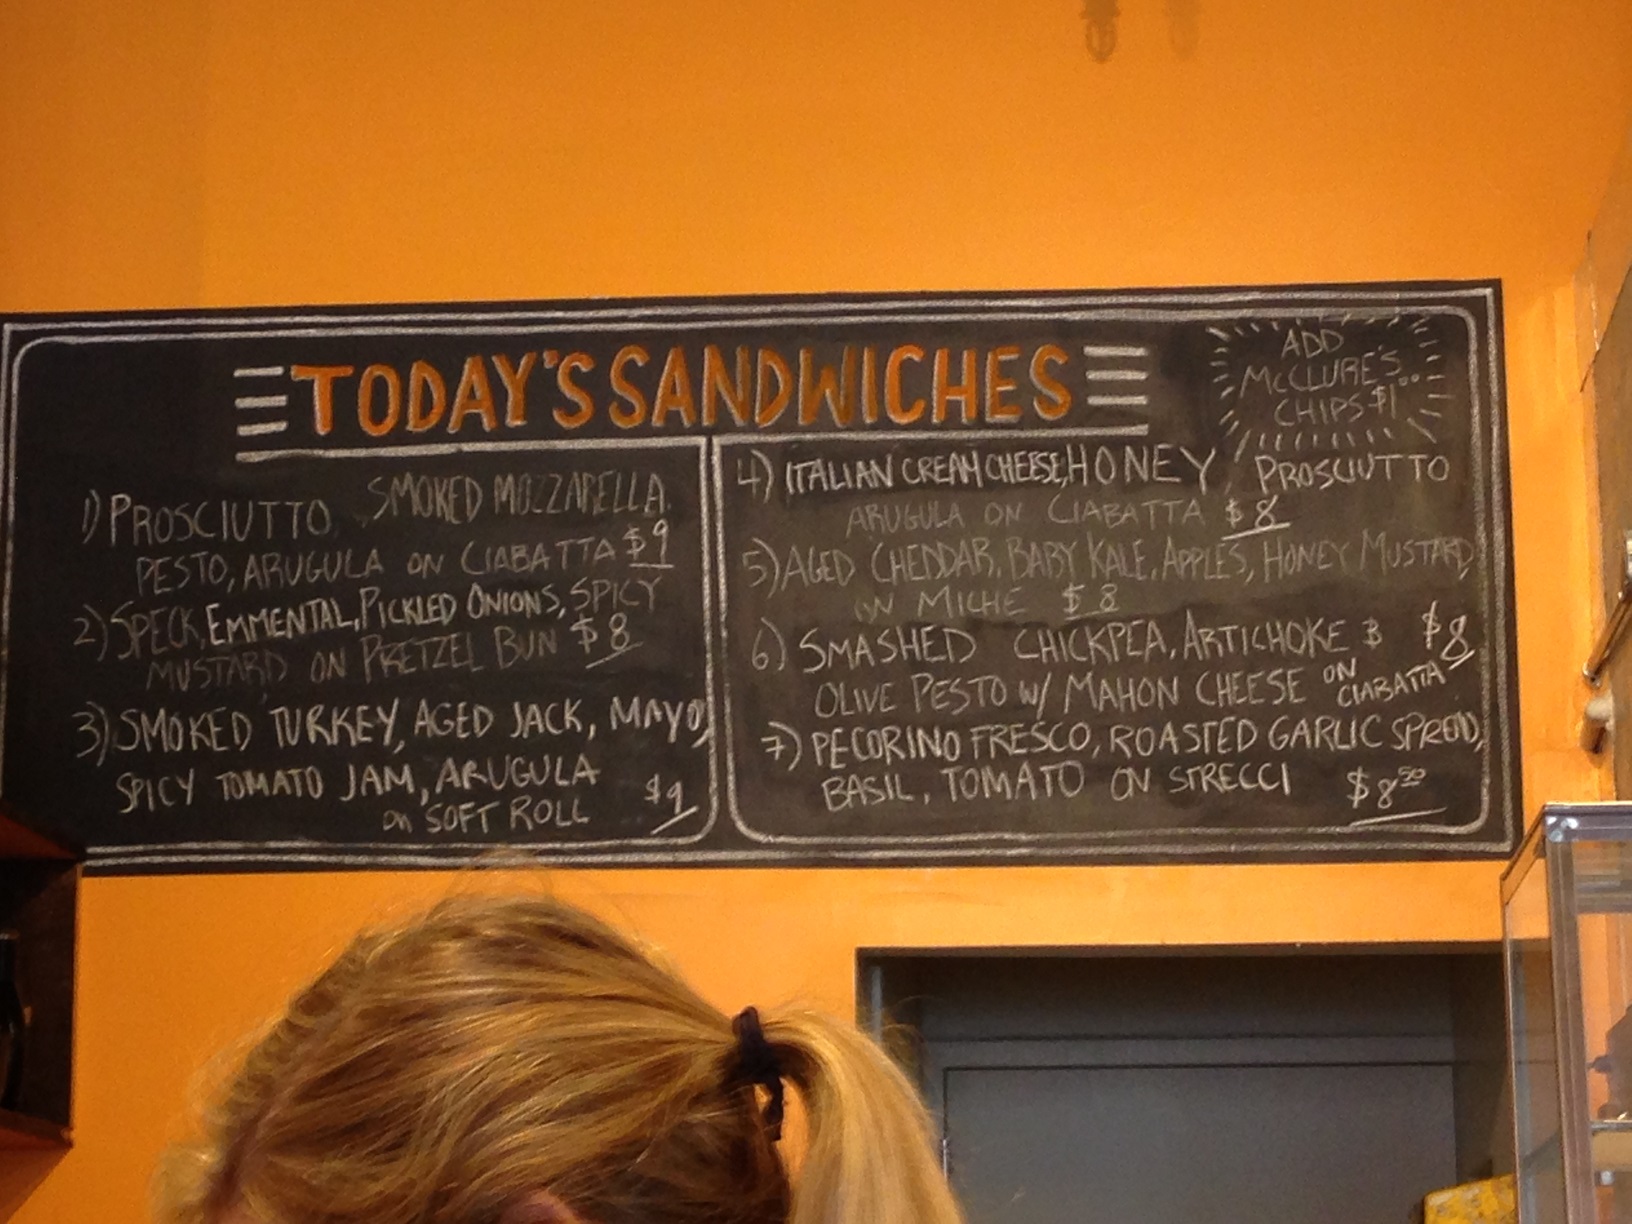 TODAY'S SANDWICHES
ADD
McCLURE'S
CHIPS $1.00
1) PROSCIUTTO, SMOKED MOZZARELLA,
PESTO, ARUGULA ON CIABATTA $9
2) SPECK, EMMENTAL, PICKLED ONIONS, SPICY
MUSTARD ON PRETZEL BUN $8
3) SMOKED TURKEY, AGED JACK, MAYO,
SPICY TOMATO JAM, ARUGULA
ON SOFT ROLL $9
4) ITALIAN CREAM CHEESE, HONEY, PROSCIUTTO
ARUGULA ON CIABATTA $8
5) AGED CHEDDAR, BABY KALE, APPLES, HONEY MUSTARD,
ON MICHE $8
6) SMASHED CHICKPEA, ARTICHOKE & $8
OLIVE PESTO W/ MAHON CHEESE ON CIABATTA
7) PECORINO FRESCO, ROASTED GARLIC SPREAD,
BASIL, TOMATO ON STRECCI $8.50